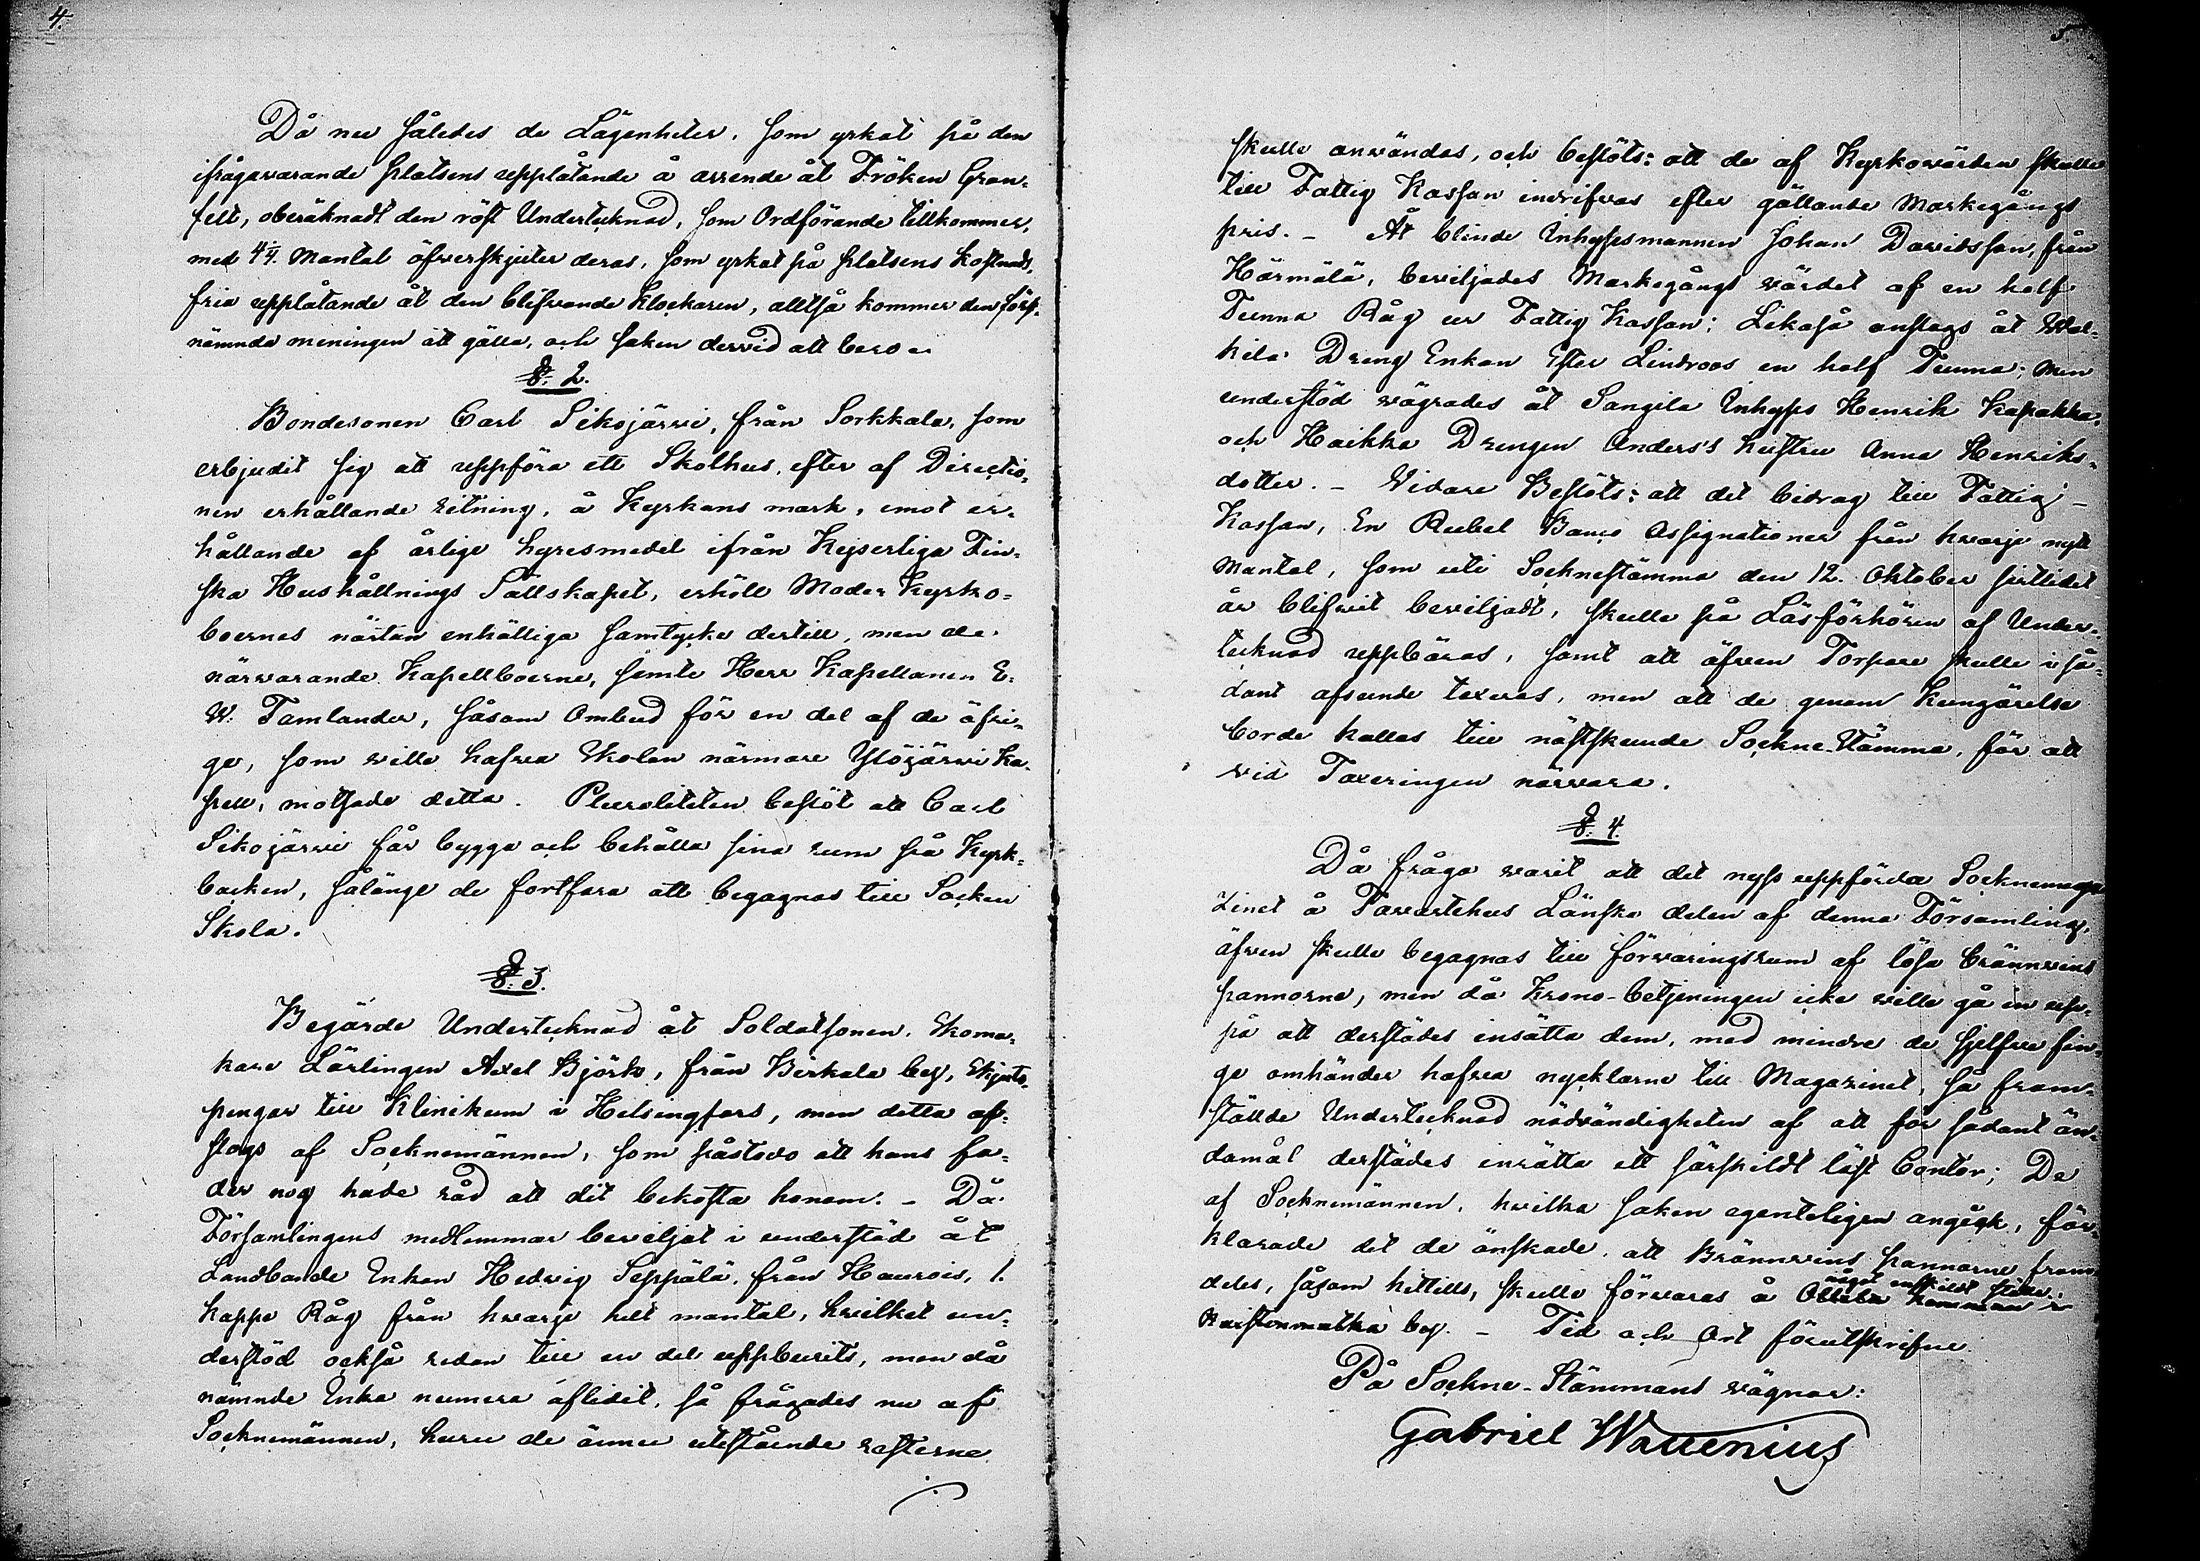 4.
Då nu således de Lägenheter, som yrkat på den
ifrågavarande platsens upplåtande å arrende åt Fröken Gran-
felt, oberäknadt den röst Undertecknad, som Ordförande tillkommer,
med 4¼ Mantal öfverskjuter deras, som yrkat på platsens kostnads-
fria upplåtande åt den blifvande Klockaren, alltså kommer den först-
nämnda meningen att gälla, och saken dervid att bero.
§. 2.
Bondesonen Carl Sikojärvi, från Sorkkala, som
erbjudit sig att uppföra ett Skolhus, efter af Directio-
nen erhållande ritning, å Kyrkans mark, emot er-
hållande af årlige hyresmedel ifrån Kejserliga Fin-
ska Hushållnings Sällskapet, erhöll Moder Kyrko-
boernes nästan enhälliga samtycke dertill, men de
närvarande Kapellboerne, jemte Herr Kapellanen E.
W. Tamlander, såsom Ombud för en del af de öfri-
ge, som ville hafva Skolan närmare Ylöjärvi Ka-
pell, motsade detta. Pluraliteten beslöt att Carl
Sikojärvi får bygga och behålla sina rum på Kyrk-
backen, sålänge de fortfara att begagnas till Socken
Skola.
§. 3.
Begärde Undertecknad åt Soldatsonen, Skoma-
kare Lärlingen Axel Björk, från Birkala by, Skjuts-
pengar till Klinikum i Helsingfors, men detta af-
slogs af Socknemännen, som påstodo att hans fa-
der nog hade råd att dit bekosta honom. - Då
Församlingens medlemmar beviljat i understöd åt
Landbonde Enkan Hedvig Seppälä, från Haurois, 1.
kappe Råg från hvarje helt mantal, hvilket un-
derstöd också redan till en del uppburits, men då
nämnde Enka numera aflidit, så frågades nu af
Socknemännen, huru de ännu utestående resterne
5.
skulle användas, och beslöts: att de af Kyrkovärden skulle
till Fattig Kassan indrifvas efter gällande Markegångs
pris. - Åt blinde Inhysesmannen Johan Davidsson, från
Härmälä, beviljades Markegångs värdet af en half
Tunna Råg ur Fattig Kassan; Likaså anslogs åt Wal-
kila Dreng Enkan Efter Lindroos en half Tunna; Men
understöd vägrades åt Sangila Inhyses Henrik Kapakka,
och Haikka Drengen Anders's hustru Anna Henriks-
dotter. - Vidare Beslöts: att det bidrag till Fattig-
Kassan, En Rubel Banco Assignationer från hvarje nytt
Mantal, som uti Socknestämma den 12. Oktober sistlidet
år blifvit beviljadt, skulle på Läsförhören af Under-
tecknad uppbäras, samt att äfven Torpare skulle i så-
dant afseende taxeras, men att de genom kungörelse
borde kallas till nästskeende Sockne-Stämma, för att
vid Taxeringen närvara.
§. 4.
Då fråga varit att det nyss uppförda Socknemaga-
zinet å Tavastehus Länska delen af denna Församling,
äfven skulle begagnas till förvaringsrum af lösa brännvins
pannorne, men då Krono-betjeningen icke ville gå in upp-
på att derstädes insätta dem, med mindre de sjelfva fin-
ge omhänder hafva nycklarne till Magazinet, så fram-
ställde Undertecknad nödvändigheten af att för sådant än-
damål derstädes inrätta ett särskildt läst Contor; De
af Socknemännen, hvilka saken egenteligen angick, för-
klarade det de önskade, att Brännvins pannorne fram-
deles, såsom hittills, skulle förvaras å
något enskildt ställe i
Kaistonmatka by. - Tid och Ort förutskrifne.
På Sockne-Stämmans vägnar:
Gabriel Wallenius